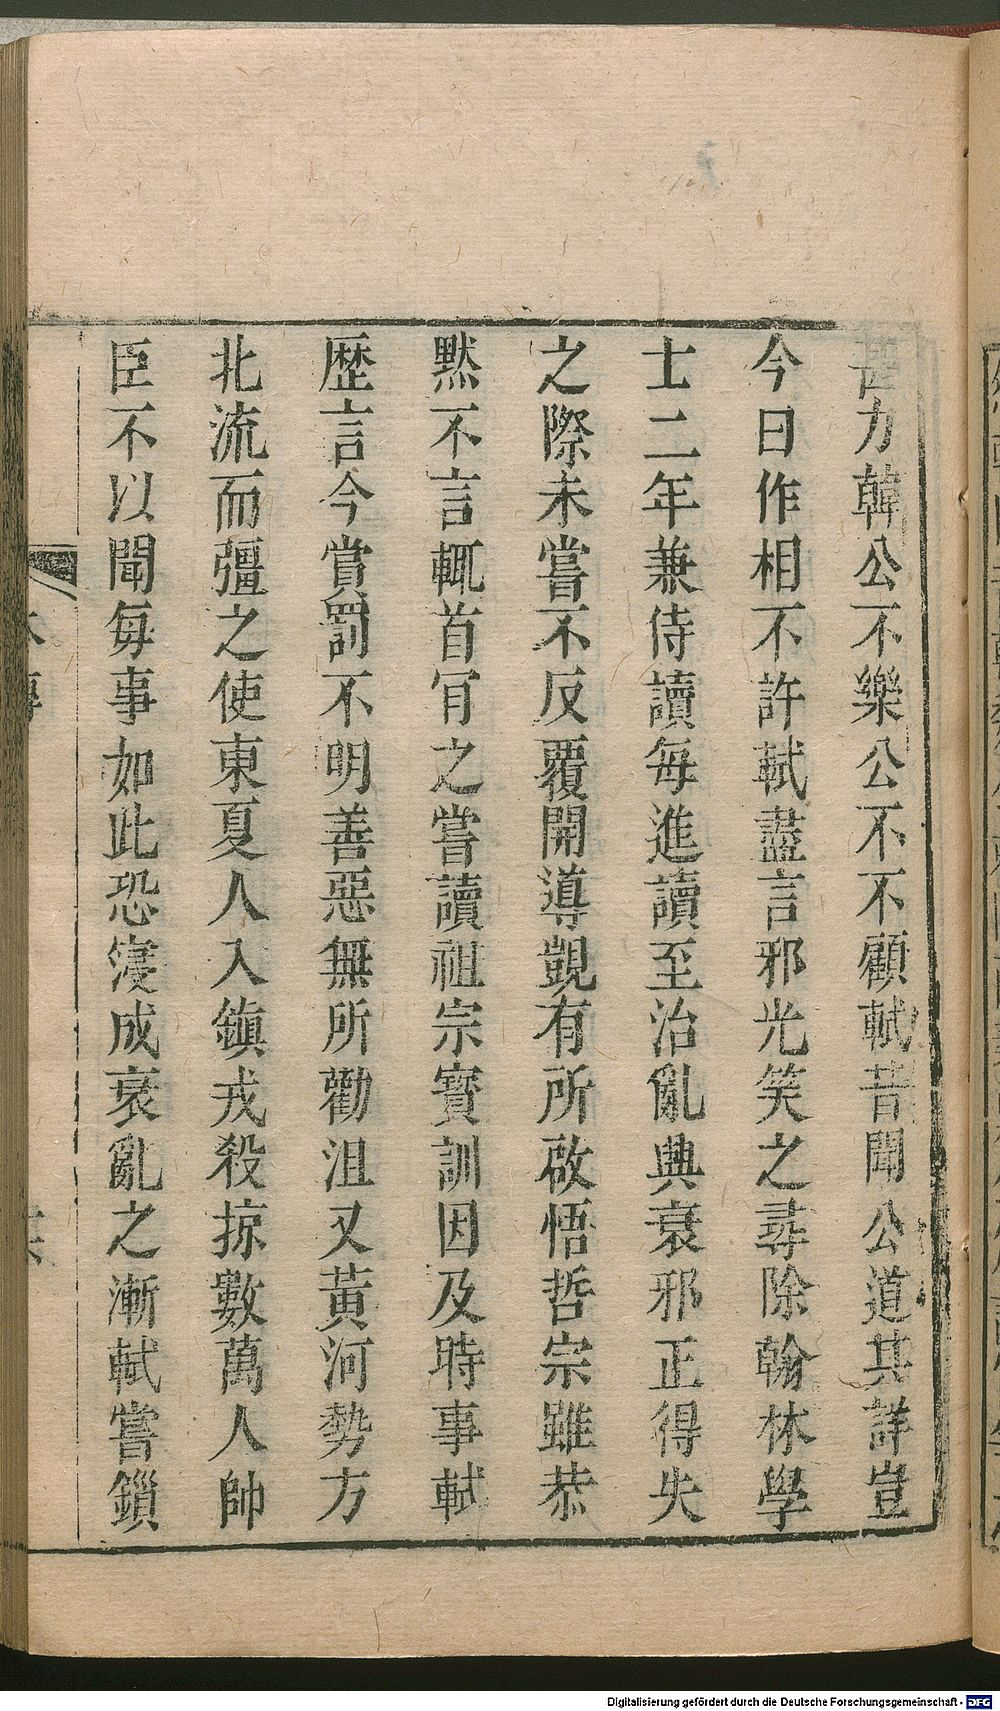 甚力韓公不樂公不不顧軾昔聞公道其詳豈
今日作相不許軾盡言邪光笑之尋除翰林學
士二年兼侍讀每進讀至治亂興衰邪正得失
之際未嘗不反覆開導覬有所啟悟哲宗雖恭
默不言輒首肎之嘗讀祖宗寶訓因及時事軾
歴言今賞罰不明善惡無所勸沮又黃河勢方
北流而彊之使東夏人入鎮戎殺掠數萬人帥
臣不以聞每事如此恐寖成衰亂之漸軾嘗鎖
本傳
Digitalisierung gefördert durch die Deutsche Forschungsgemeinschaft - DFG